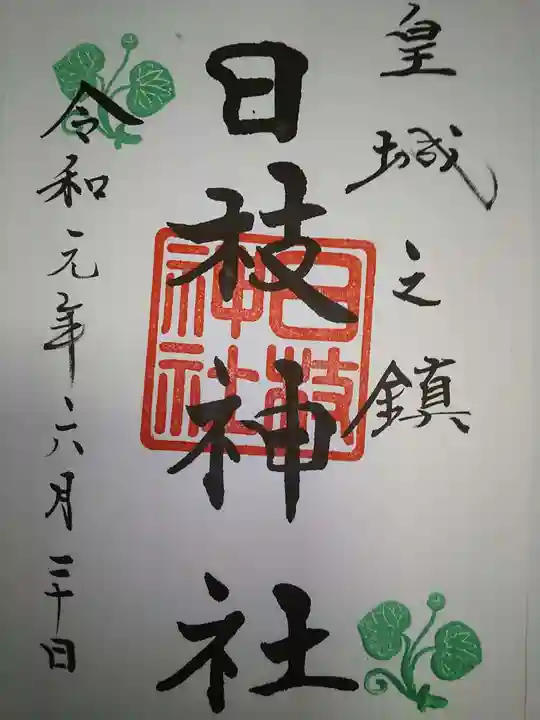 皇城之鎮
日枝神社
日枝神社
令和元年六月二十日